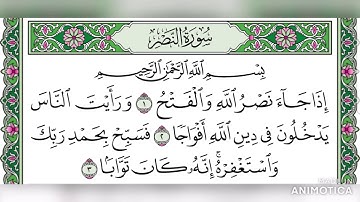 سُورَةُ النَّصْرِ
بِسْمِ اللَّهِ الرَّحْمَٰنِ الرَّحِيمِ
إِذَا جَآءَ نَصْرُ اللَّهِ وَالْفَتْحُ ١ وَرَأَيْتَ النَّاسَ
يَدْخُلُونَ فِي دِينِ اللَّهِ أَفْوَاجًا ٢ فَسَبِّحْ بِحَمْدِ رَبِّكَ
وَاسْتَغْفِرْهُ ۚ إِنَّهُ كَانَ تَوَّابًا ٣
ANIMOTICA